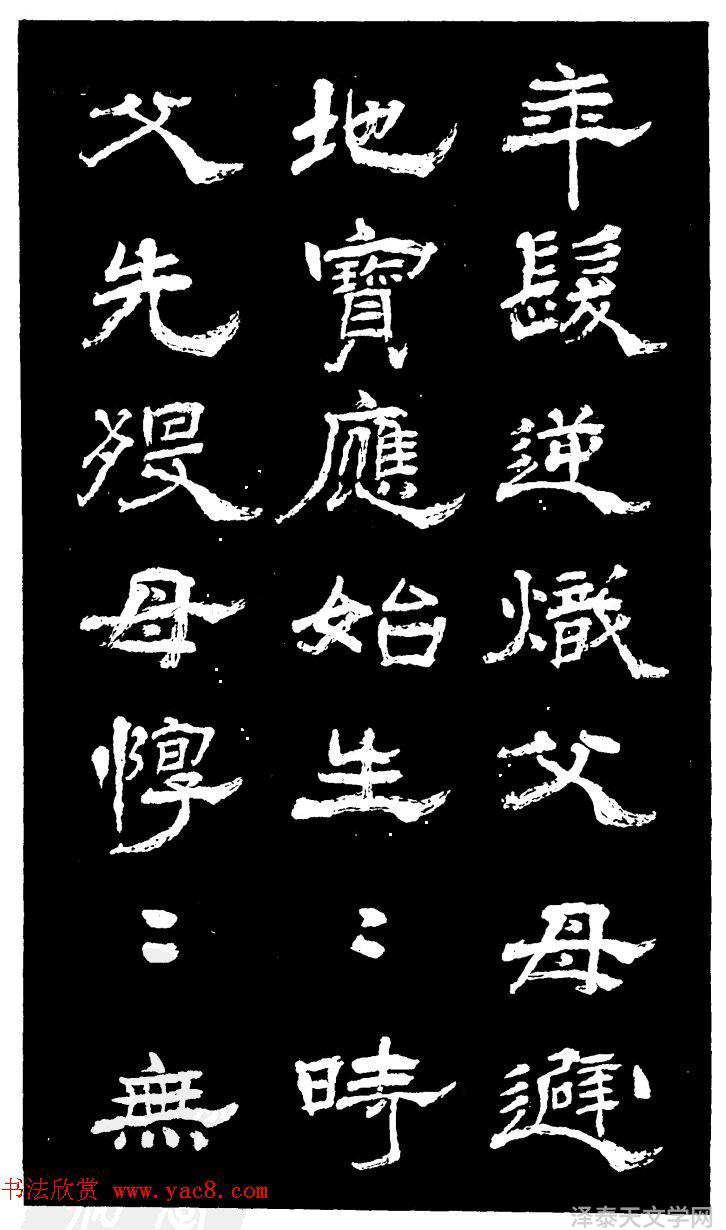 年髮逆熾父母避
地寶應始生〻時
父先歿母惸〻無
书法欣赏 www.yac8.com
泽泰天文学网